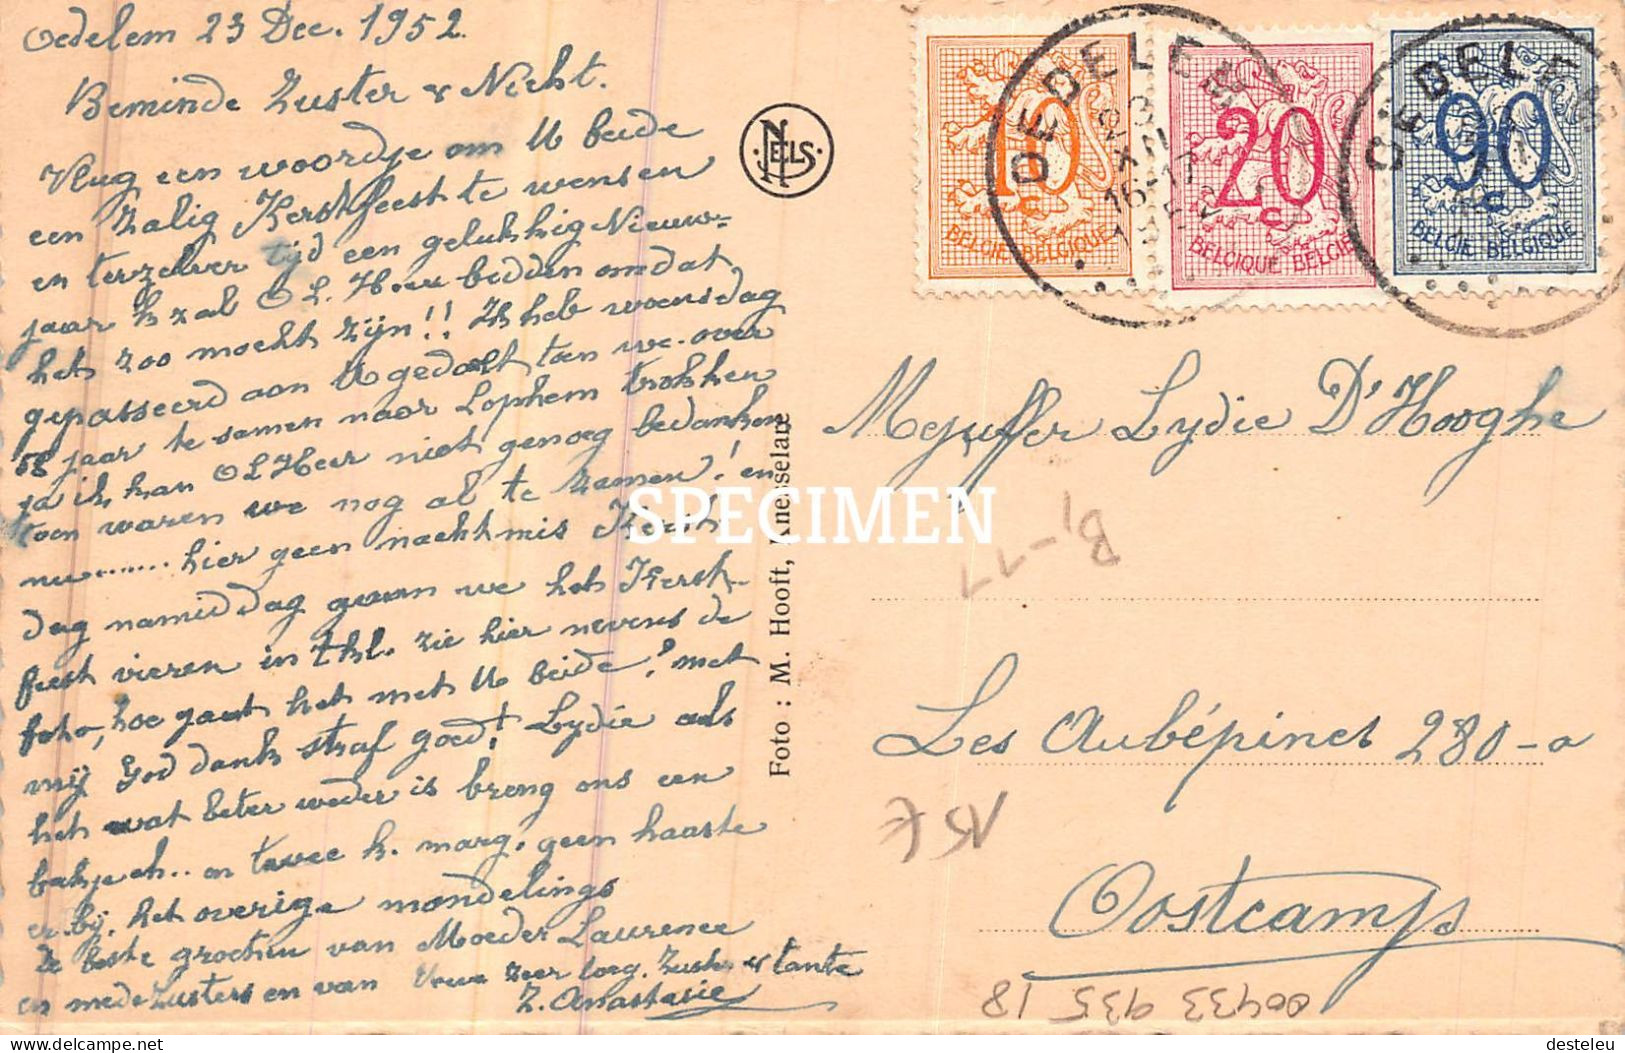 Oedelem 23 Dec. 1952.
Beminde Zuster & Nicht.
Vlug een woordje om U beide
een Zalig Kerstfeest te wensen
en terzelver tijd een gelukkig Nieuw-
jaar k zal O L. Heer bidden omdat
het zoo mocht zijn!! Ik heb woensdag
gepasseerd aan U gedacht toen we over
58 jaar te samen naar Lophem trokken
ja ik kan O L Heer niet genoeg bedanken
toen waren we nog al te zamen! en
nu........ hier geen nachtmis Kerst-
dag namiddag gaan we het Kerst-
feest vieren in zie hier nevens de
foto, hoe gaat het met U beide? met
mij God dank straf goed! Lydie als
het wat beter weder is breng ons een
bakje ch.. en twee k. marg. geen haaste
er bij. het overige mondelings
De beste groeten van Moeder Laurence
en medezusters en van Uwe zeer toeg. Zuster & tante
Z. Anastasie
NELS
Foto : M. Hooft, Knesselare
SPECIMEN
OEDELEM
23 XII
16-17
1952
10
BELGIE BELGIQUE
20
BELGIQUE BELGIE
OEDELEM
90
BELGIE BELGIQUE
Mejuffer Lydie D'Hooghe
B1-11
Les Aubépines 280-a
15 €
Oostcamp
00433 935 18
delcampe.net
desteleu